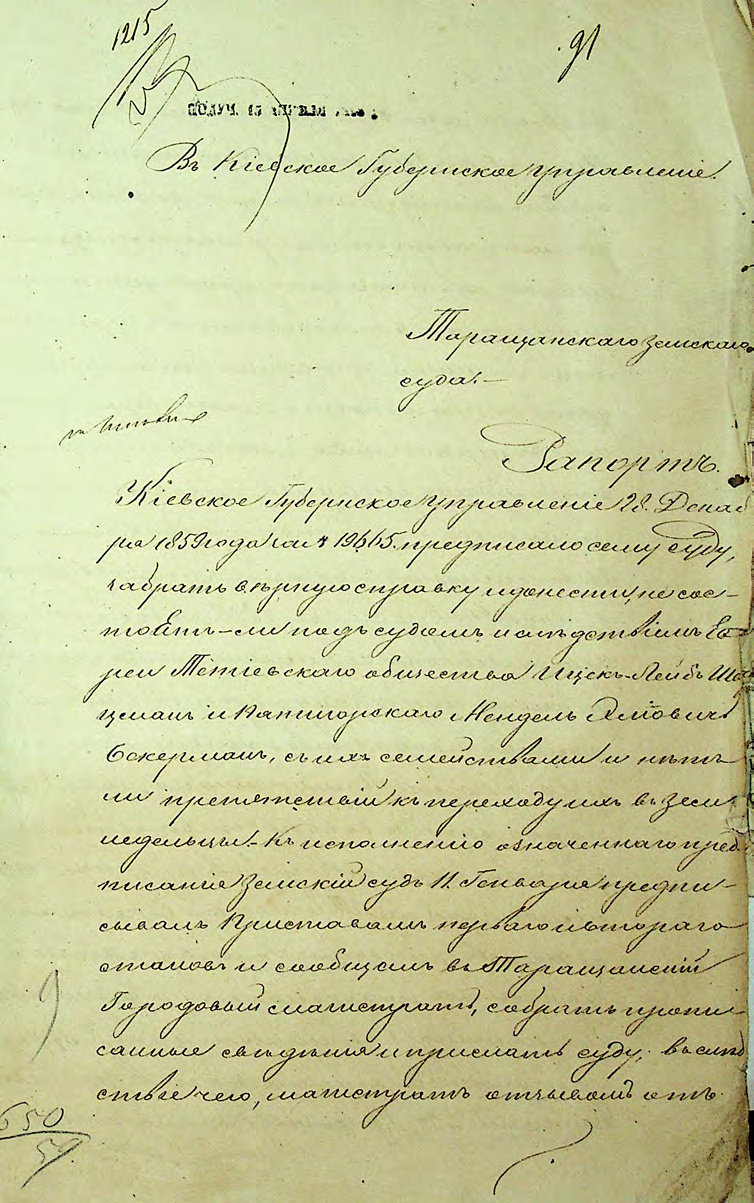 1215
91
ПОЛУЧ. 15
Въ Кіевское Губернское управленіе.
Таращанскаго земскаго
суда.–
Рапортъ.
Кіевское Губернское управленіе 28. Декаб
ря 1859 года за № 19665. предписало сему суду,
забрать вѣрную справку и донести, не сос-
тоятъ-ли подъ судомъ и слѣдствіемъ Ев-
реи Тетіевскаго общества Ицек-Лейбъ
цман и Пятигорскаго Мендель
Бокерман, съ ихъ семействами и нѣтъ
ли препятствій къ переходу ихъ въ Зем
ледельцы.– Къ исполненію означеннаго пред
писанія Земскій судъ 11. Генваря предпи-
сывалъ Приставамъ перваго и втораго
становъ и сообщалъ въ Таращанскій
Городовый магистратъ, собрать пропи
санные свѣдѣнія и прислать суду, въ слѣд
ствіе чего, магистратъ отзывомъ отъ
650
59